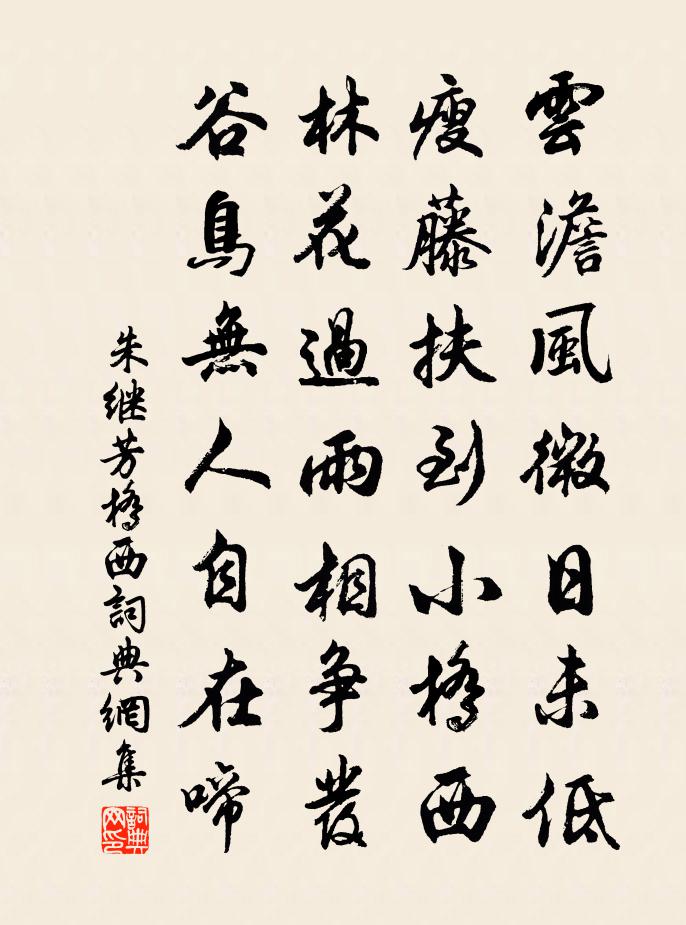 雲澹風微日未低
瘦藤扶到小橋西
林花過雨相爭發
谷鳥無人自在啼
朱继芳橋西詞典網集
詞典網印